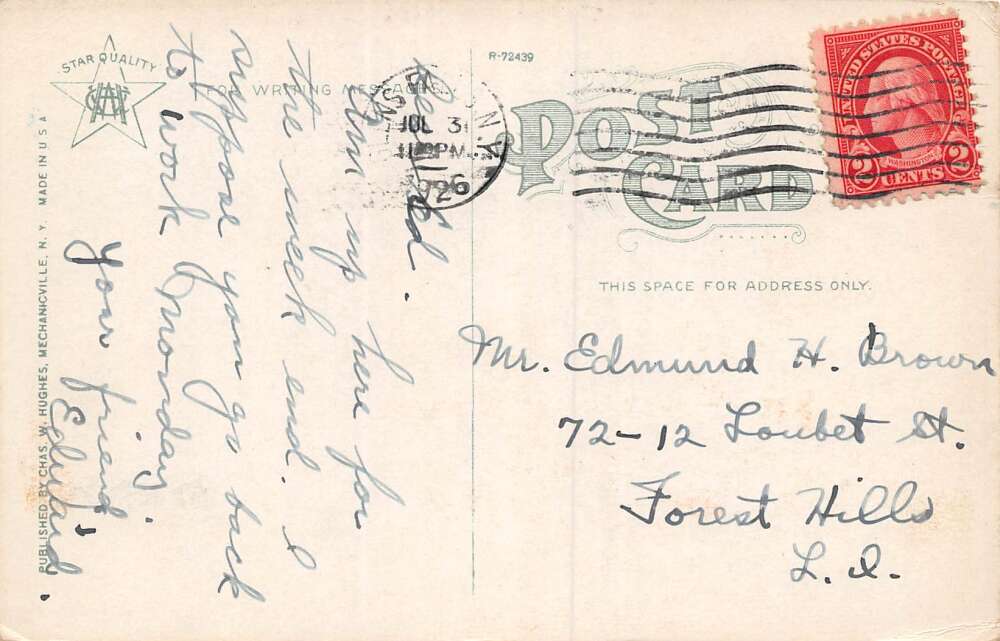 STAR QUALITY
FOR WRITING MESSAGES
R-72439
JUL 31
PM
1926
N.Y.
POST
CARD
UNITED STATES POSTAGE
WASHINGTON
2 CENTS 2
THIS SPACE FOR ADDRESS ONLY.
Mr. Edmund H. Brown
72-12 Loubet St.
Forest Hills
L. I.
Ed.
Am up here for
the week end. I
suppose you go back
to work Monday.
Your friend
Edward.
PUBLISHED BY CHAS. W. HUGHES, MECHANICVILLE, N. Y. MADE IN U S A